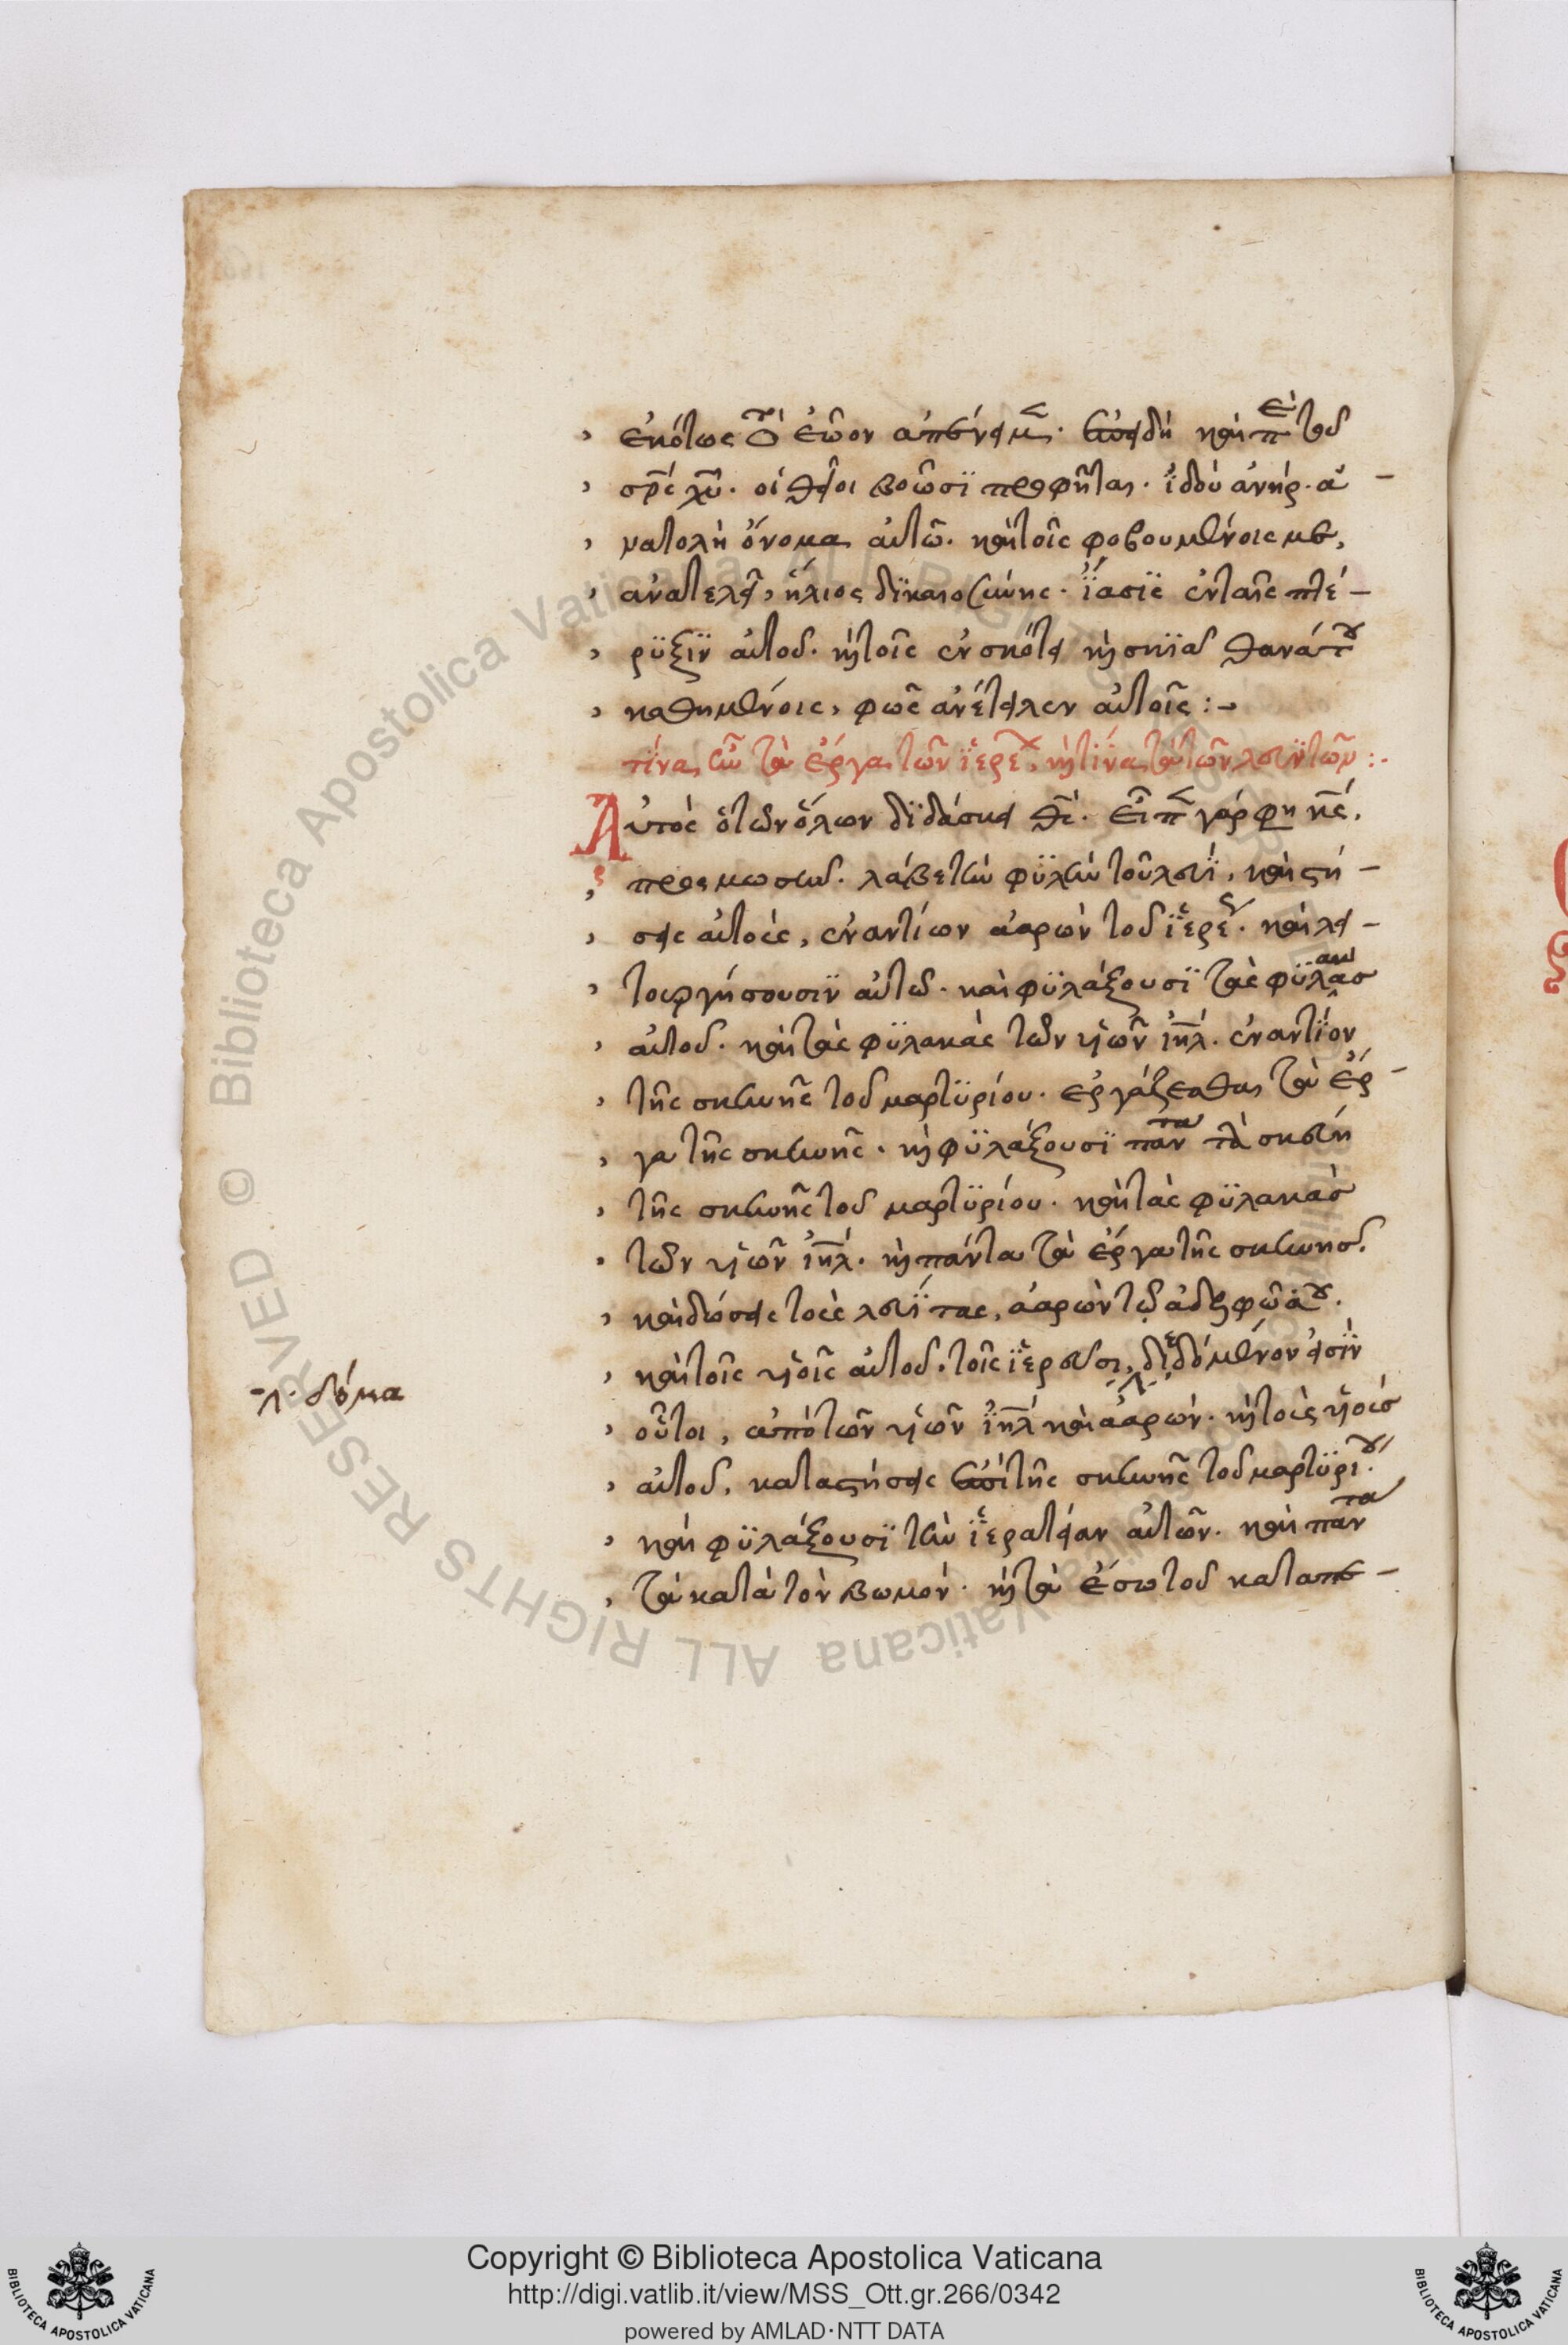 εἰκότως τὸ ἑῶον ἀπένειμε. ἐπειδὴ καὶ περὶ τοῦ
σρς χυ. οἱ θεῖοι βοῶσϊ προφῆται. ἰδοὺ ἀνήρ. ἀ-
νατολὴ ὄνομα αὐτῶ. καὶ τοῖς φοβουμένοις με,
ἀνατελεῖ, ἥλιος δϊκαιοσύνης. ἴασϊς ἐν ταῖς πτέ-
ρϋξιν αὐτοῦ. καὶ τοῖς ἐν σκότει καὶ σκιᾶ θανάτου
καθημένοις, φῶς ἀνέτειλεν αὐτοῖς :-
τίνα ἦν τὰ ἔργα τῶν ἱερέων, καὶ τίνα τὰ τῶν λευϊτῶν :-
Αὐτὸς ὁ τῶν ὅλων διδάσκει θς. εἶπε γάρ φη κς,
πρὸς μωσῆν. λάβε τὴν φϋλὴν τοῦ λευΐ, καὶ στή-
σεις αὐτοὺς, ἐναντίων ἀαρὼν τοῦ ἱερέως. καὶ λει-
τουργήσουσιν αὐτῶ. καὶ φϋλάξουσϊ τὰς φϋλακὰς
αὐτοῦ. καὶ τὰς φϋλακὰς τῶν υἱῶν ιηλ. ἐναντίον
τῆς σκηνῆς τοῦ μαρτϋρίου. ἐργάζεσθαι τὰ ἔρ-
γα τῆς σκηνῆς. καὶ φϋλάξουσϊ πάντα τὰ σκεύη
τῆς σκηνῆς τοῦ μαρτϋρίου. καὶ τὰς φϋλακὰς
τῶν υἱῶν ιηλ. καὶ πάντα τὰ ἔργα τῆς σκηνῆς.
καὶ δώσεις τοὺς λευΐτας, ἀαρὼν τῷ ἀδελφῶ σου.
καὶ τοῖς υἱοῖς αὐτοῦ. τοῖς ἱερεῦσι, δεδομένον εἰσϊν
οὗτοι, ἀπὸ τῶν υἱῶν ιηλ καὶ ἀαρών. καὶ τοὺς υἱοὺς
αὐτοῦ, καταστήσεις ἐπὶ τῆς σκηνῆς τοῦ μαρτϋρίου.
καὶ φϋλάξουσϊ τὴν ἱερατείαν αὐτῶν. καὶ πάντα
τὰ κατὰ τὸν βωμόν. καὶ τὰ ἔσω τοῦ καταπε-
λ. δόμα
Copyright © Biblioteca Apostolica Vaticana
http://digi.vatlib.it/view/MSS_Ott.gr.266/0342
powered by AMLAD·NTT DATA